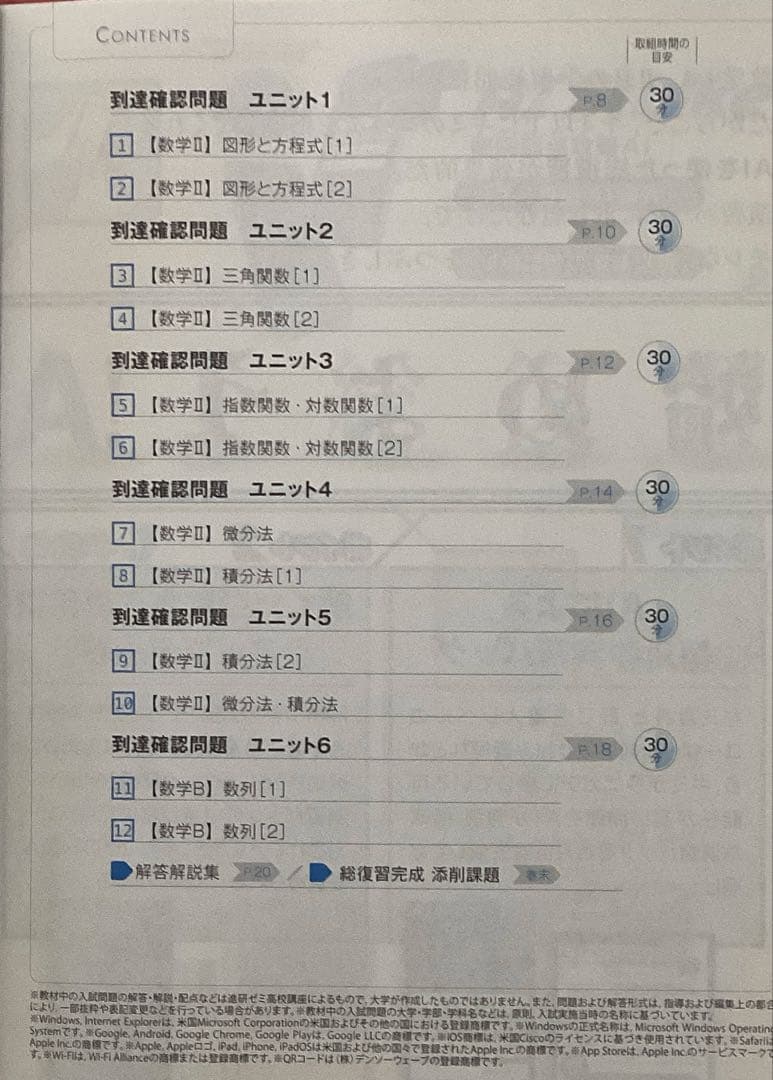 CONTENTS
取組時間の
目安
到達確認問題 ユニット1 P.8 30分
1 【数学Ⅱ】図形と方程式[1]
2 【数学Ⅱ】図形と方程式[2]
到達確認問題 ユニット2 P.10 30分
3 【数学Ⅱ】三角関数[1]
4 【数学Ⅱ】三角関数[2]
到達確認問題 ユニット3 P.12 30分
5 【数学Ⅱ】指数関数・対数関数[1]
6 【数学Ⅱ】指数関数・対数関数[2]
到達確認問題 ユニット4 P.14 30分
7 【数学Ⅱ】微分法
8 【数学Ⅱ】積分法[1]
到達確認問題 ユニット5 P.16 30分
9 【数学Ⅱ】積分法[2]
10 【数学Ⅱ】微分法・積分法
到達確認問題 ユニット6 P.18 30分
11 【数学B】数列[1]
12 【数学B】数列[2]
解答解説集 P.20 / 総復習完成 添削課題 巻末
※教材中の入試問題の解答・解説・配点などは進研ゼミ高校講座によるもので、大学が作成したものではありません。また、問題および解答形式は、指導および編集上の都合
により、一部抜粋や表記変更などを行っている場合があります。※教材中の入試問題の大学・学部・学科名などは、原則、入試実施当時の名称に基づいています。
※Windows, Internet Explorerは、米国Microsoft Corporationの米国およびその他の国における登録商標です。※Windowsの正式名称は、Microsoft Windows Operating
Systemです。※Google, Android, Google Chrome, Google Playは、Google LLCの商標です。※iOS商標は、米国Ciscoのライセンスに基づき使用されています。※Safariは
Apple Inc.の商標です。※Apple, Appleロゴ, iPad, iPhone, iPadOSは米国および他の国々で登録されたApple Inc.の商標です。※App Storeは、Apple Inc.のサービスマークで
す。※Wi-Fiは、Wi-Fi Allianceの商標または登録商標です。※QRコードは(株)デンソーウェーブの登録商標です。